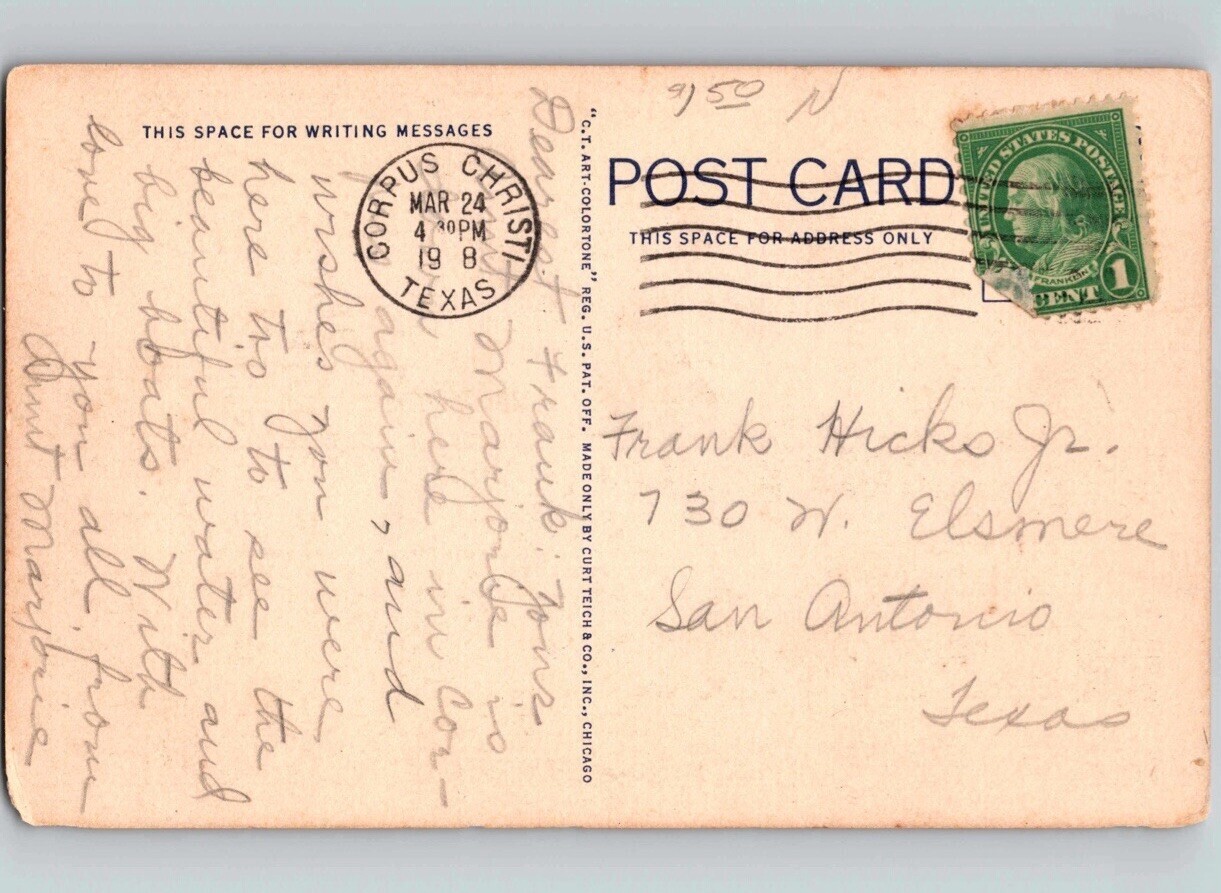 9/50 N
THIS SPACE FOR WRITING MESSAGES
POST CARD
THIS SPACE FOR ADDRESS ONLY
CORPUS CHRISTI
MAR 24
4 30 PM
19 8
TEXAS
UNITED STATES POSTAGE
FRANKLIN
1
CENT
"C.T. ART-COLORTONE" REG. U.S. PAT. OFF. MADE ONLY BY CURT TEICH & CO., INC., CHICAGO
Dearest Frank: Your
Aunt Marjorie is
here in Cor-
again, and
wishes you were
here too to see the
beautiful water and
big boats. With
love to you all, from
Aunt Marjorie
Frank Hicks Jr.
730 W. Elsmere
San Antonio
Texas